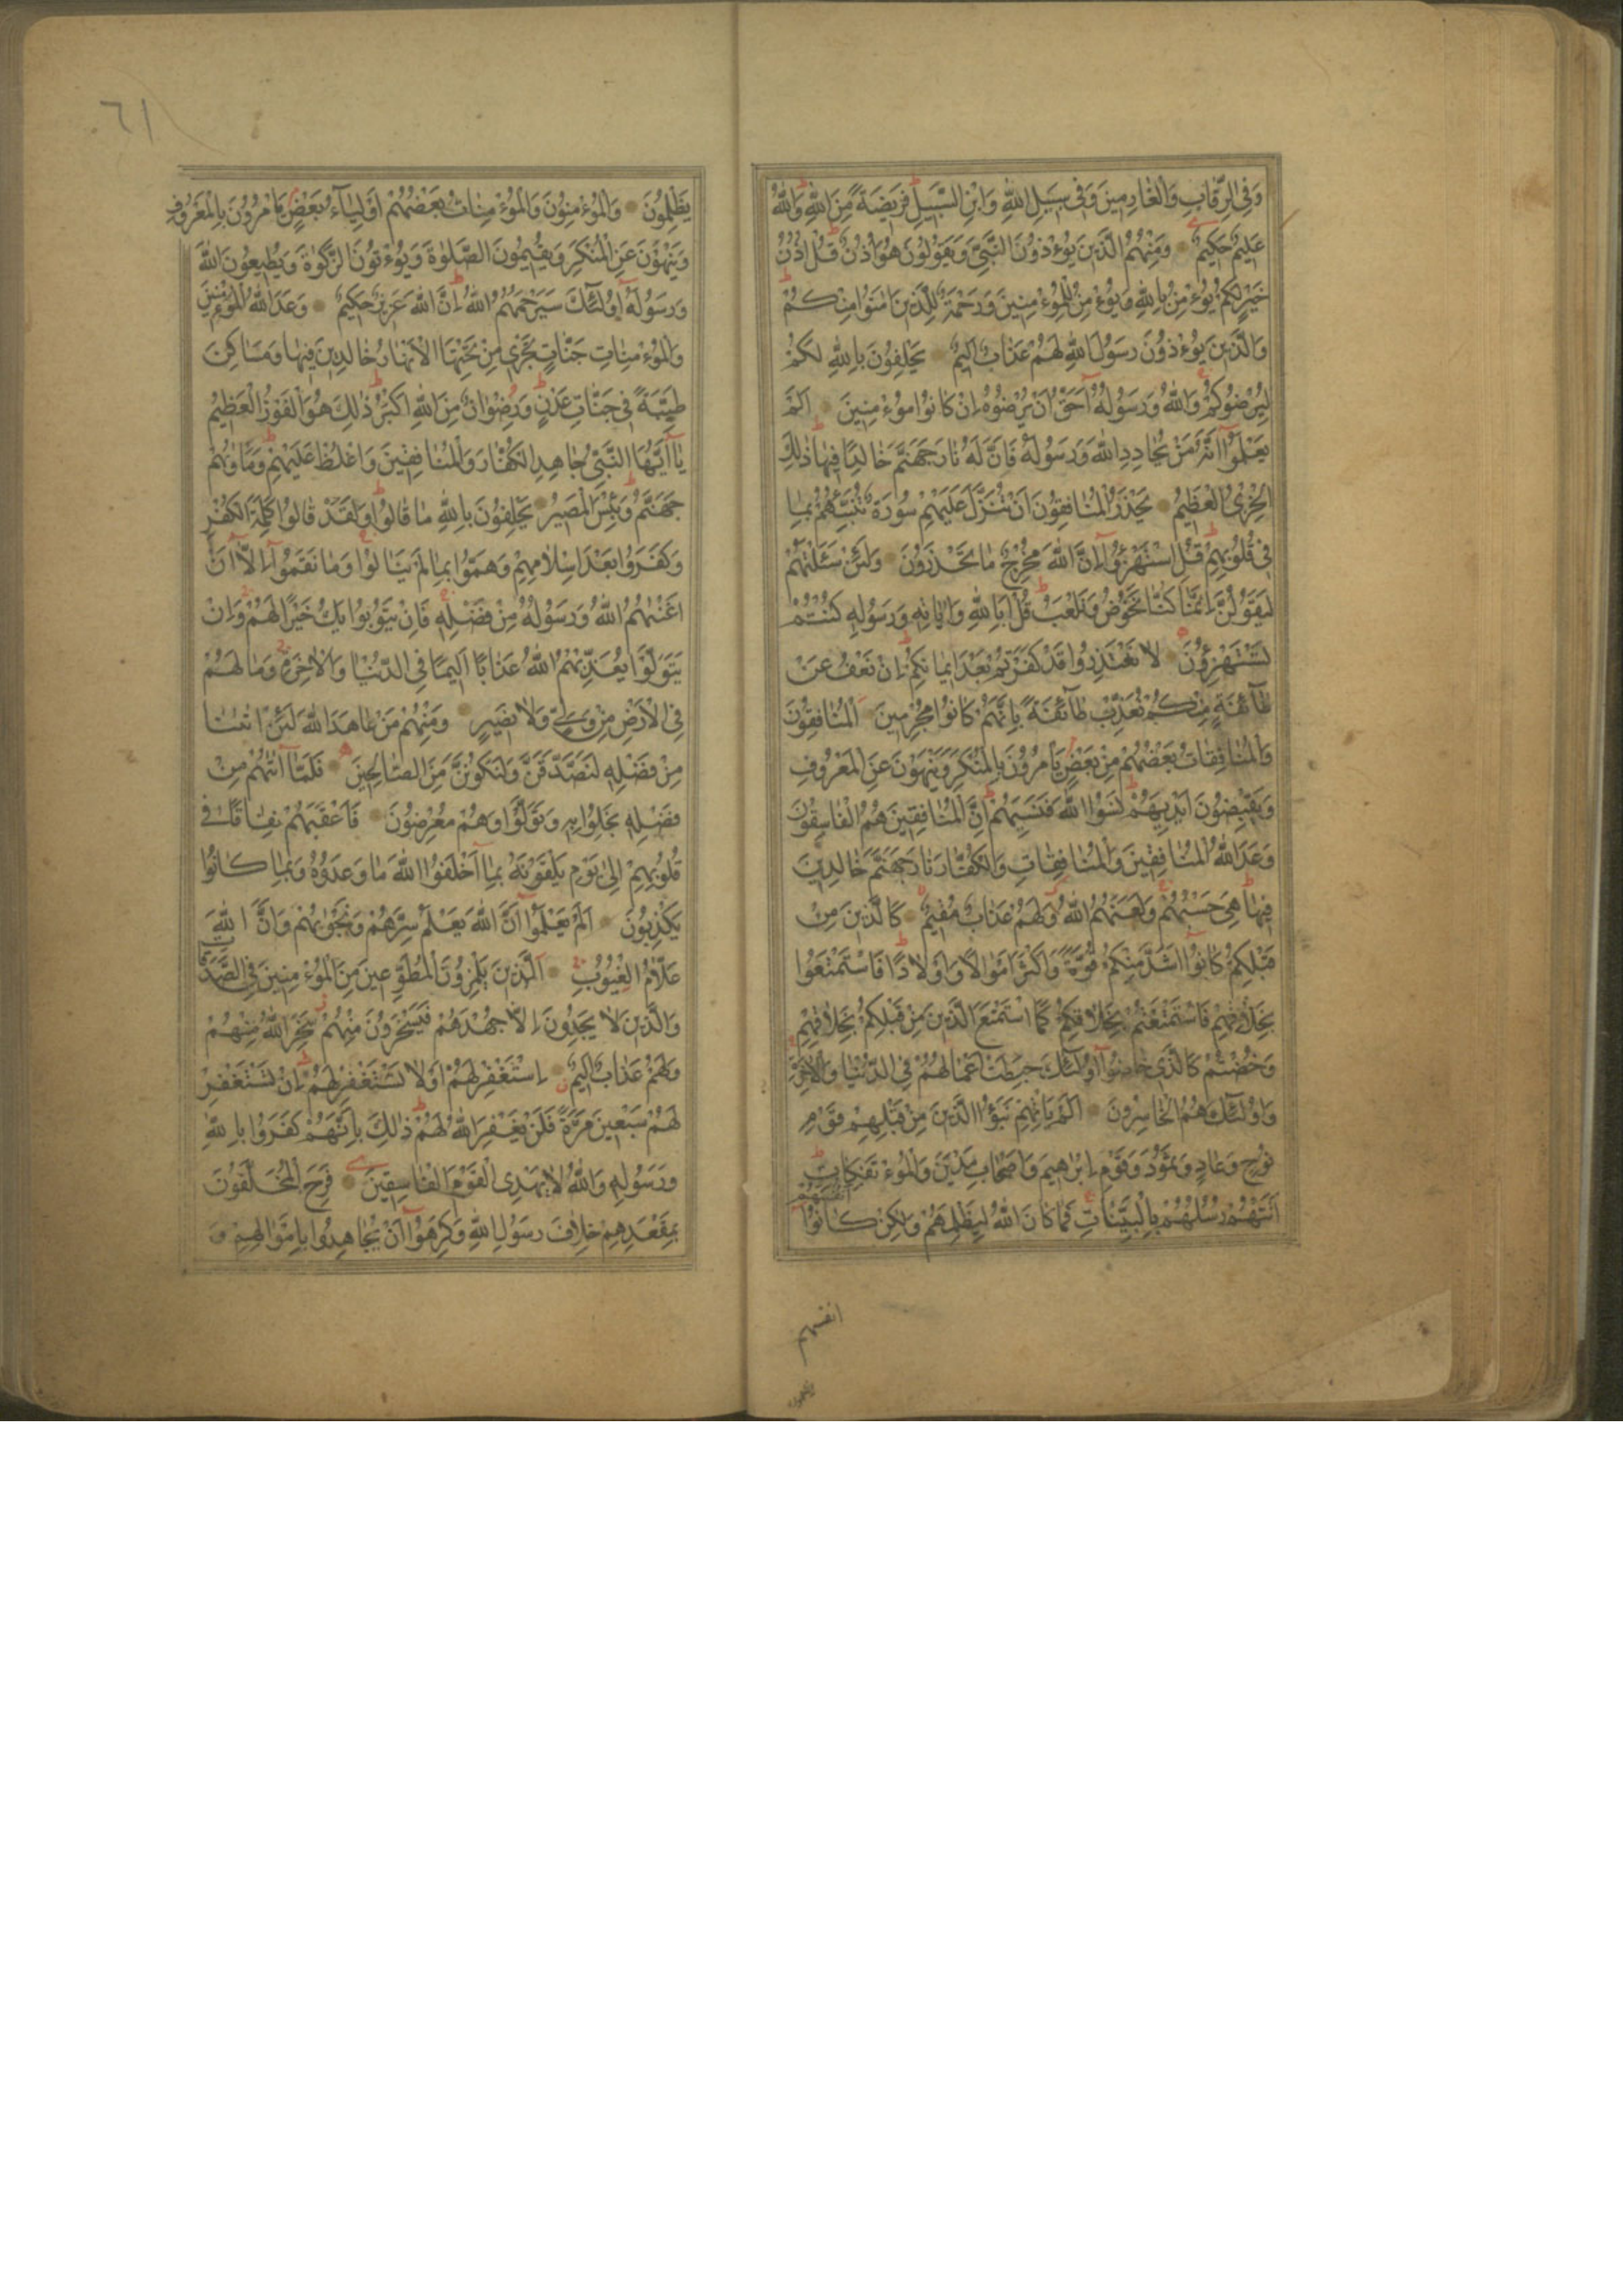 وَفِي الرِّقَابِ وَالْغَارِمِينَ وَفِي سَبِيلِ اللّٰهِ وَابْنِ السَّبِيلِ فَرِيضَةً مِنَ اللّٰهِ وَاللّٰهُ
عَلِيمٌ حَكِيمٌ وَمِنْهُمُ الَّذِينَ يُؤْذُونَ النَّبِيَّ وَيَقُولُونَ هُوَ أُذُنٌ قُلْ أُذُنُ
خَيْرٍ لَكُمْ يُؤْمِنُ بِاللّٰهِ وَيُؤْمِنُ لِلْمُؤْمِنِينَ وَرَحْمَةٌ لِلَّذِينَ اٰمَنُوا مِنْكُمْ
وَالَّذِينَ يُؤْذُونَ رَسُولَ اللّٰهِ لَهُمْ عَذَابٌ اَلِيمٌ يَحْلِفُونَ بِاللّٰهِ لَكُمْ
لِيُرْضُوكُمْ وَاللّٰهُ وَرَسُولُهُ اَحَقُّ اَنْ يُرْضُوهُ اِنْ كَانُوا مُؤْمِنِينَ اَلَمْ
يَعْلَمُوا اَنَّهُ مَنْ يُحَادِدِ اللّٰهَ وَرَسُولَهُ فَاَنَّ لَهُ نَارَ جَهَنَّمَ خَالِدًا فِيهَا ذٰلِكَ
الْخِزْيُ الْعَظِيمُ يَحْذَرُ الْمُنَافِقُونَ اَنْ تُنَزَّلَ عَلَيْهِمْ سُورَةٌ تُنَبِّئُهُمْ بِمَا
فِي قُلُوبِهِمْ قُلِ اسْتَهْزِؤُا اِنَّ اللّٰهَ مُخْرِجٌ مَا تَحْذَرُونَ وَلَئِنْ سَئَلْتَهُمْ
لَيَقُولُنَّ اِنَّمَا كُنَّا نَخُوضُ وَنَلْعَبُ قُلْ اَبِاللّٰهِ وَاٰيَاتِهِ وَرَسُولِهِ كُنْتُمْ
تَسْتَهْزِؤُنَ لَا تَعْتَذِرُوا قَدْ كَفَرْتُمْ بَعْدَ اِيمَانِكُمْ اِنْ نَعْفُ عَنْ
طَائِفَةٍ مِنْكُمْ نُعَذِّبْ طَائِفَةً بِاَنَّهُمْ كَانُوا مُجْرِمِينَ اَلْمُنَافِقُونَ
وَالْمُنَافِقَاتُ بَعْضُهُمْ مِنْ بَعْضٍ يَأْمُرُونَ بِالْمُنْكَرِ وَيَنْهَوْنَ عَنِ الْمَعْرُوفِ
وَيَقْبِضُونَ اَيْدِيَهُمْ نَسُوا اللّٰهَ فَنَسِيَهُمْ اِنَّ الْمُنَافِقِينَ هُمُ الْفَاسِقُونَ
وَعَدَ اللّٰهُ الْمُنَافِقِينَ وَالْمُنَافِقَاتِ وَالْكُفَّارَ نَارَ جَهَنَّمَ خَالِدِينَ
فِيهَا هِيَ حَسْبُهُمْ وَلَعَنَهُمُ اللّٰهُ وَلَهُمْ عَذَابٌ مُقِيمٌ كَالَّذِينَ مِنْ
قَبْلِكُمْ كَانُوا اَشَدَّ مِنْكُمْ قُوَّةً وَاَكْثَرَ اَمْوَالًا وَاَوْلَادًا فَاسْتَمْتَعُوا
بِخَلَاقِهِمْ فَاسْتَمْتَعْتُمْ بِخَلَاقِكُمْ كَمَا اسْتَمْتَعَ الَّذِينَ مِنْ قَبْلِكُمْ بِخَلَاقِهِمْ
وَخُضْتُمْ كَالَّذِي خَاضُوا اُولٰئِكَ حَبِطَتْ اَعْمَالُهُمْ فِي الدُّنْيَا وَالْاٰخِرَةِ
وَاُولٰئِكَ هُمُ الْخَاسِرُونَ اَلَمْ يَأْتِهِمْ نَبَؤُا الَّذِينَ مِنْ قَبْلِهِمْ قَوْمِ
نُوحٍ وَعَادٍ وَثَمُودَ وَقَوْمِ اِبْرَاهِيمَ وَاَصْحَابِ مَدْيَنَ وَالْمُؤْتَفِكَاتِ
اَتَتْهُمْ رُسُلُهُمْ بِالْبَيِّنَاتِ فَمَا كَانَ اللّٰهُ لِيَظْلِمَهُمْ وَلٰكِنْ كَانُوا
اَنْفُسَهُمْ
انفسهم
٦١
يَظْلِمُونَ وَالْمُؤْمِنُونَ وَالْمُؤْمِنَاتُ بَعْضُهُمْ اَوْلِيَاءُ بَعْضٍ يَأْمُرُونَ بِالْمَعْرُوفِ
وَيَنْهَوْنَ عَنِ الْمُنْكَرِ وَيُقِيمُونَ الصَّلٰوةَ وَيُؤْتُونَ الزَّكٰوةَ وَيُطِيعُونَ اللّٰهَ
وَرَسُولَهُ اُولٰئِكَ سَيَرْحَمُهُمُ اللّٰهُ اِنَّ اللّٰهَ عَزِيزٌ حَكِيمٌ وَعَدَ اللّٰهُ الْمُؤْمِنِينَ
وَالْمُؤْمِنَاتِ جَنَّاتٍ تَجْرِي مِنْ تَحْتِهَا الْاَنْهَارُ خَالِدِينَ فِيهَا وَمَسَاكِنَ
طَيِّبَةً فِي جَنَّاتِ عَدْنٍ وَرِضْوَانٌ مِنَ اللّٰهِ اَكْبَرُ ذٰلِكَ هُوَ الْفَوْزُ الْعَظِيمُ
يَا اَيُّهَا النَّبِيُّ جَاهِدِ الْكُفَّارَ وَالْمُنَافِقِينَ وَاغْلُظْ عَلَيْهِمْ وَمَأْوٰيهُمْ
جَهَنَّمُ وَبِئْسَ الْمَصِيرُ يَحْلِفُونَ بِاللّٰهِ مَا قَالُوا وَلَقَدْ قَالُوا كَلِمَةَ الْكُفْرِ
وَكَفَرُوا بَعْدَ اِسْلَامِهِمْ وَهَمُّوا بِمَا لَمْ يَنَالُوا وَمَا نَقَمُوا اِلَّا اَنْ
اَغْنٰيهُمُ اللّٰهُ وَرَسُولُهُ مِنْ فَضْلِهِ فَاِنْ يَتُوبُوا يَكُ خَيْرًا لَهُمْ وَاِنْ
يَتَوَلَّوْا يُعَذِّبْهُمُ اللّٰهُ عَذَابًا اَلِيمًا فِي الدُّنْيَا وَالْاٰخِرَةِ وَمَا لَهُمْ
فِي الْاَرْضِ مِنْ وَلِيٍّ وَلَا نَصِيرٍ وَمِنْهُمْ مَنْ عَاهَدَ اللّٰهَ لَئِنْ اٰتٰينَا
مِنْ فَضْلِهِ لَنَصَّدَّقَنَّ وَلَنَكُونَنَّ مِنَ الصَّالِحِينَ فَلَمَّا اٰتٰيهُمْ مِنْ
فَضْلِهِ بَخِلُوا بِهِ وَتَوَلَّوْا وَهُمْ مُعْرِضُونَ فَاَعْقَبَهُمْ نِفَاقًا فِي
قُلُوبِهِمْ اِلٰى يَوْمِ يَلْقَوْنَهُ بِمَا اَخْلَفُوا اللّٰهَ مَا وَعَدُوهُ وَبِمَا كَانُوا
يَكْذِبُونَ اَلَمْ يَعْلَمُوا اَنَّ اللّٰهَ يَعْلَمُ سِرَّهُمْ وَنَجْوٰيهُمْ وَاَنَّ اللّٰهَ
عَلَّامُ الْغُيُوبِ اَلَّذِينَ يَلْمِزُونَ الْمُطَّوِّعِينَ مِنَ الْمُؤْمِنِينَ فِي الصَّدَقَاتِ
وَالَّذِينَ لَا يَجِدُونَ اِلَّا جُهْدَهُمْ فَيَسْخَرُونَ مِنْهُمْ سَخِرَ اللّٰهُ مِنْهُمْ
وَلَهُمْ عَذَابٌ اَلِيمٌ اِسْتَغْفِرْ لَهُمْ اَوْ لَا تَسْتَغْفِرْ لَهُمْ اِنْ تَسْتَغْفِرْ
لَهُمْ سَبْعِينَ مَرَّةً فَلَنْ يَغْفِرَ اللّٰهُ لَهُمْ ذٰلِكَ بِاَنَّهُمْ كَفَرُوا بِاللّٰهِ
وَرَسُولِهِ وَاللّٰهُ لَا يَهْدِي الْقَوْمَ الْفَاسِقِينَ فَرِحَ الْمُخَلَّفُونَ
بِمَقْعَدِهِمْ خِلَافَ رَسُولِ اللّٰهِ وَكَرِهُوا اَنْ يُجَاهِدُوا بِاَمْوَالِهِمْ وَ